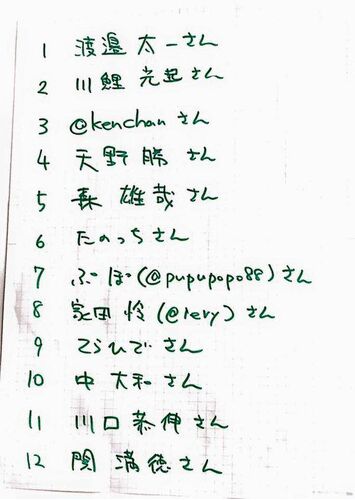 1 渡邉太一さん
2 川鯉光起さん
3 @kenchanさん
4 天野勝さん
5 森雄哉さん
6 たのっちさん
7 ぷぽ(@pupupopo88)さん
8 家田怜(@rery)さん
9 てらひでさん
10 中大和さん
11 川口恭伸さん
12 関満徳さん